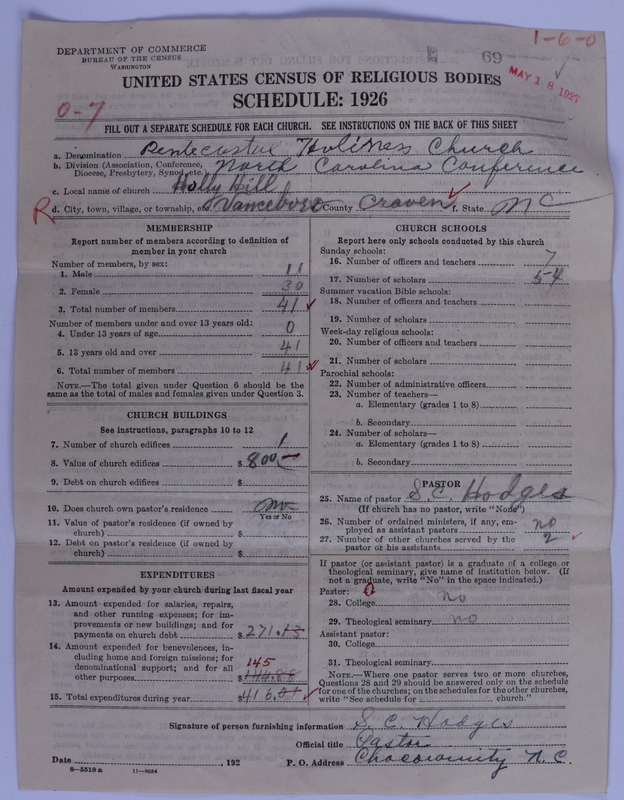 DEPARTMENT OF COMMERCE
BUREAU OF THE CENSUS
WASHINGTON
69
1-6-0
MAY 18 1927
UNITED STATES CENSUS OF RELIGIOUS BODIES
SCHEDULE: 1926
0-7
FILL OUT A SEPARATE SCHEDULE FOR EACH CHURCH. SEE INSTRUCTIONS ON THE BACK OF THIS SHEET
a. Denomination Pentecostal Holiness Church
b. Division (Association, Conference, Diocese, Presbytery, Synod, etc.) North Carolina Conference
c. Local name of church Holly Hill
R d. City, town, village, or township, etc. Vanceboro County Craven f. State NC
MEMBERSHIP
Report number of members according to definition of
member in your church
Number of members, by sex:
1. Male 11
2. Female 30
3. Total number of members 41
Number of members under and over 13 years old:
4. Under 13 years of age 0
5. 13 years old and over 41
6. Total number of members 41
NOTE.—The total given under Question 6 should be
same as the total of males and females given under Question 3.
CHURCH BUILDINGS
See instructions, paragraphs 10 to 12
7. Number of church edifices 1
8. Value of church edifices $ 800
9. Debt on church edifices $
10. Does church own pastor's residence no
Yes or No
11. Value of pastor's residence (if owned by
church) $
12. Debt on pastor's residence (if owned by
church) $
EXPENDITURES
Amount expended by your church during last fiscal year
13. Amount expended for salaries, repairs,
and other running expenses; for im-
provements or new buildings; and for
payments on church debt $ 271.13
14. Amount expended for benevolences, in-
cluding home and foreign missions; for
denominational support; and for all 145
other purposes $ 144.88
15. Total expenditures during year $ 416.01
CHURCH SCHOOLS
Report here only schools conducted by this church
Sunday schools:
16. Number of officers and teachers 7
17. Number of scholars 54
Summer vacation Bible schools:
18. Number of officers and teachers
19. Number of scholars
Week-day religious schools:
20. Number of officers and teachers
21. Number of scholars
Parochial schools:
22. Number of administrative officers
23. Number of teachers—
a. Elementary (grades 1 to 8)
b. Secondary
24. Number of scholars—
a. Elementary (grades 1 to 8)
b. Secondary
PASTOR
25. Name of pastor S. C. Hodges
(If church has no pastor, write "None")
26. Number of ordained ministers, if any, em-
ployed as assistant pastors no
27. Number of other churches served by the
pastor or his assistants 2
If pastor (or assistant pastor) is a graduate of a college or
theological seminary, give name of institution below. (If
not a graduate, write "No" in the space indicated.)
Pastor:
28. College no
29. Theological seminary no
Assistant pastor:
30. College
31. Theological seminary
NOTE.—Where one pastor serves two or more churches,
Questions 28 and 29 should be answered only on the schedule
for one of the churches; on the schedules for the other churches,
write "See schedule for church."
Signature of person furnishing information S. C. Hodges
Official title Pastor
Date , 192 P. O. Address Chocowinity N. C.
8-5518 a 11-9054